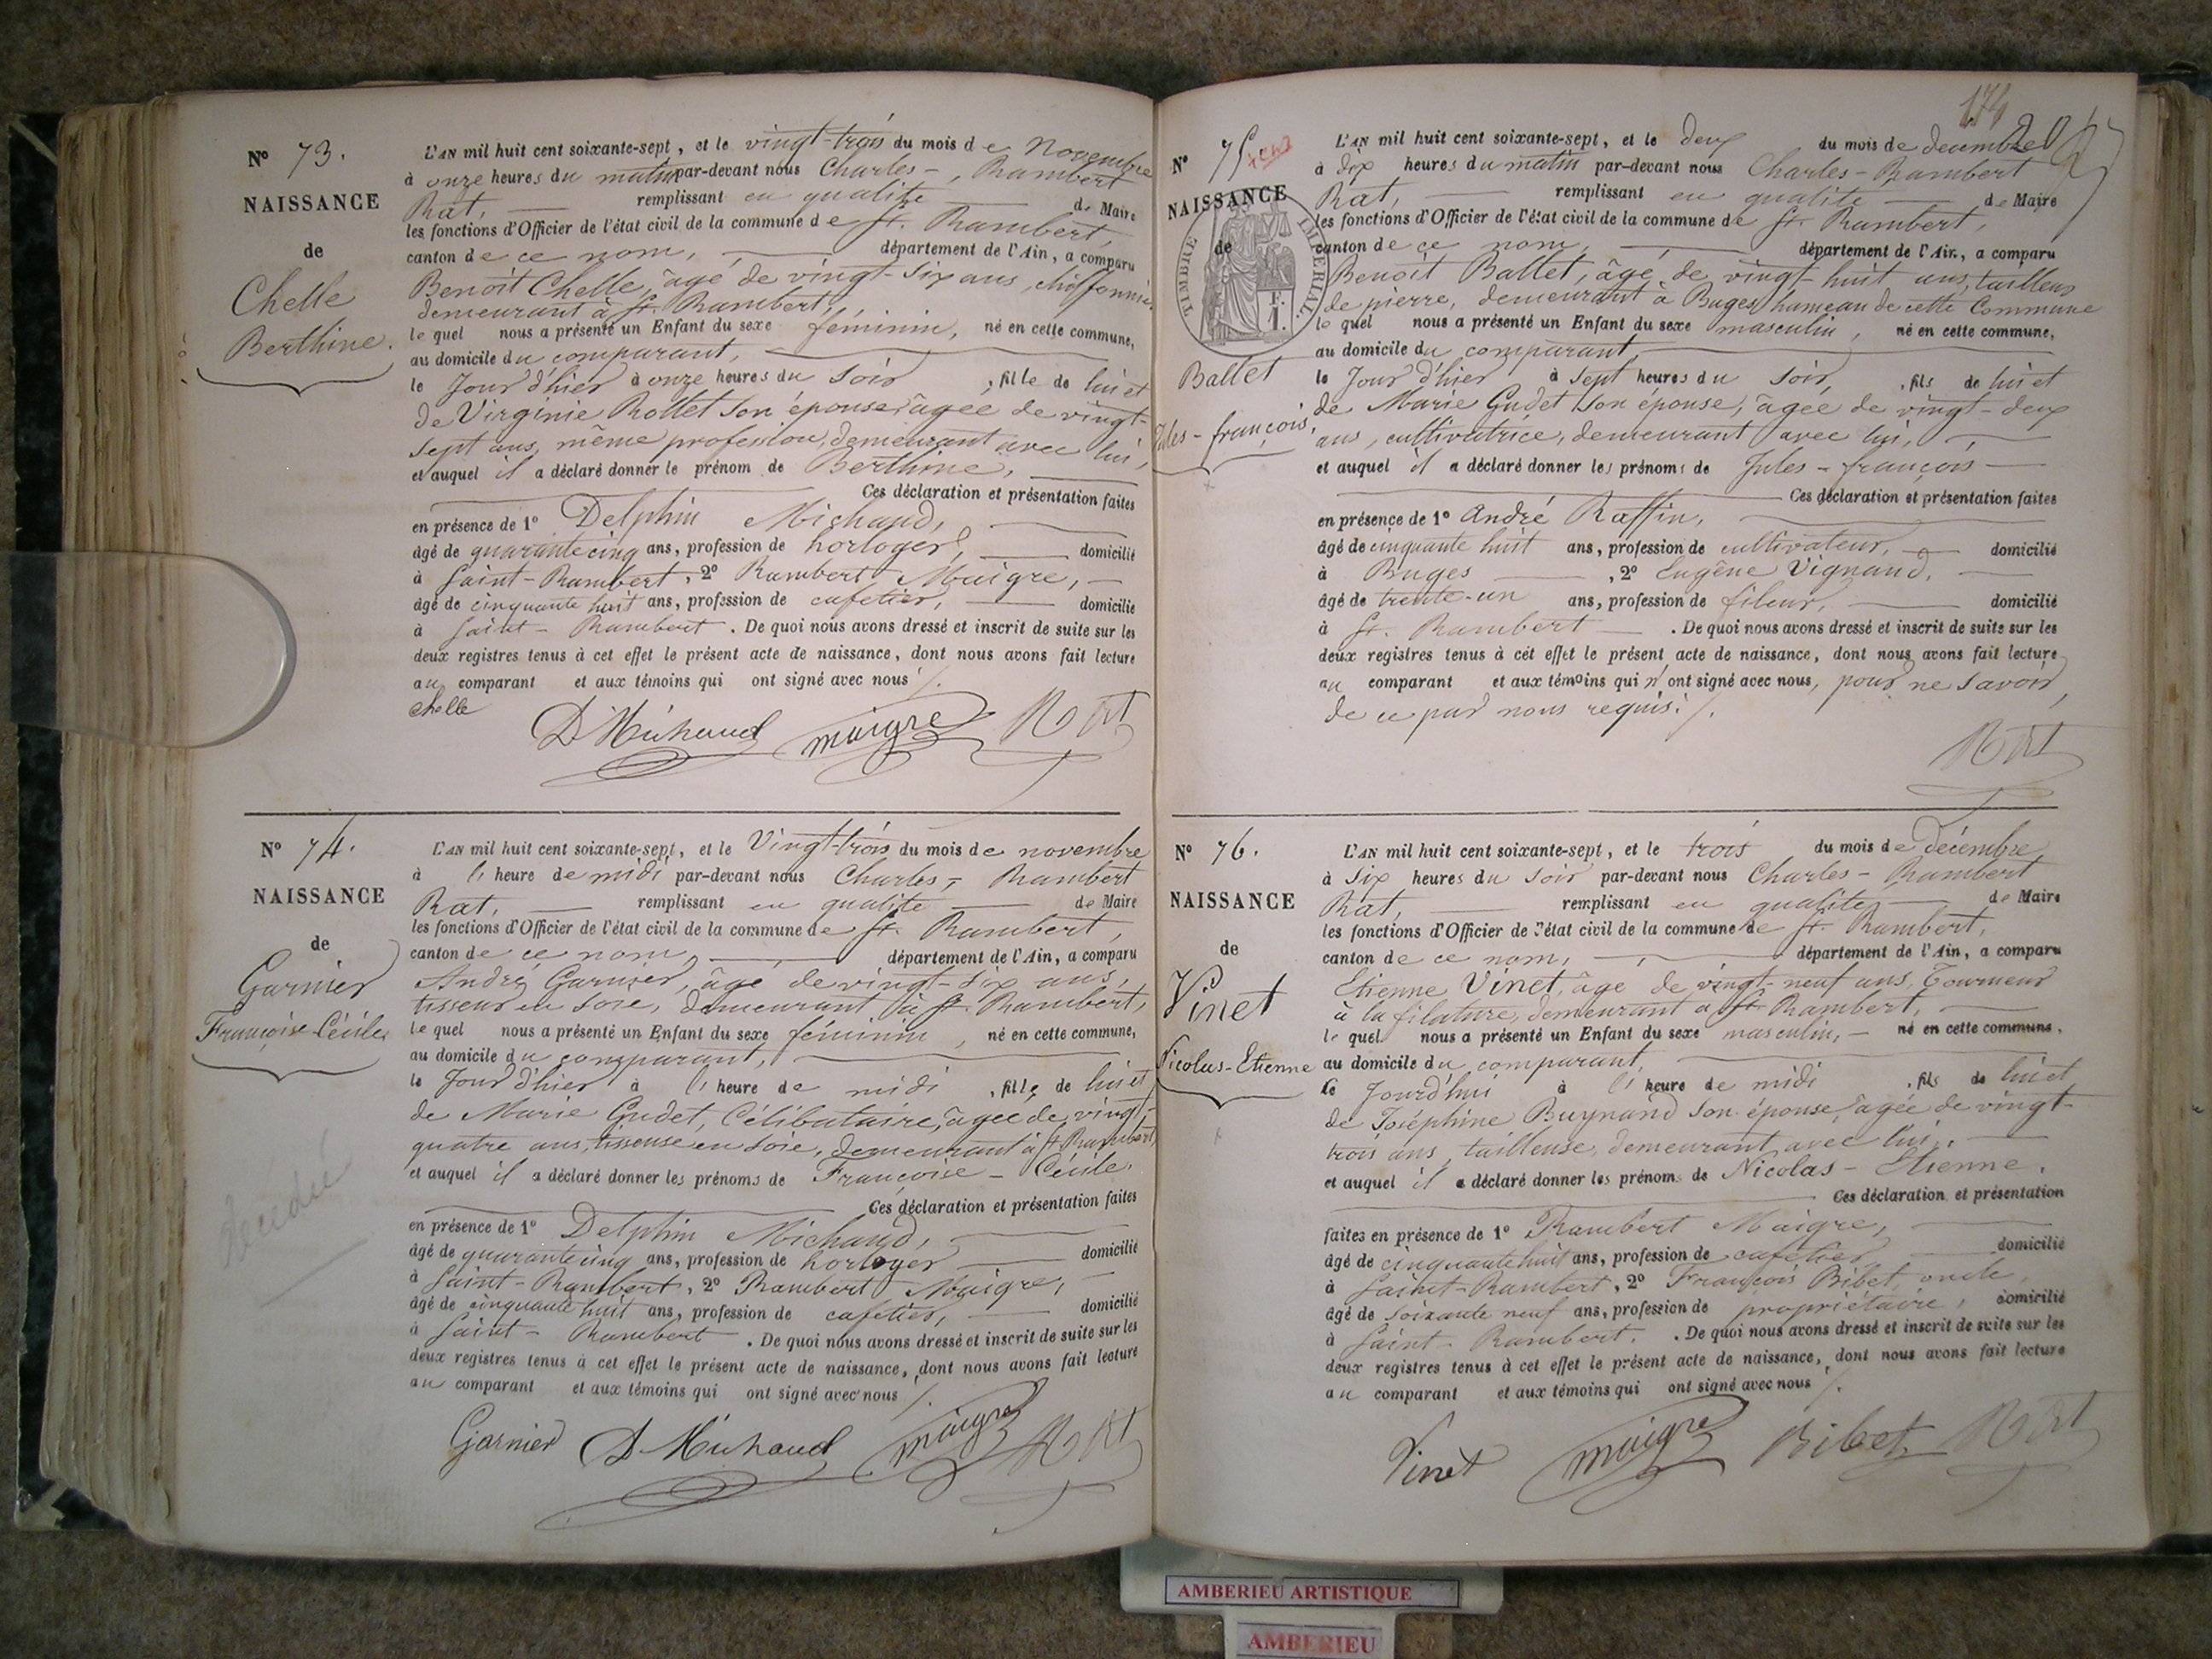 N° 73.
NAISSANCE
de
Chelle
Berthine.
L'AN mil huit cent soixante-sept, et le vingt-trois du mois de Novembre
à onze heures du matin par-devant nous Charles-, Rambert
Rat, remplissant en qualité de Maire
les fonctions d'Officier de l'état civil de la commune de St. Rambert,
canton de ce nom, département de l'Ain, a comparu
Benoit Chelle, âgé de vingt-six ans, chiffonnier
demeurant à St. Rambert,
le quel nous a présenté un Enfant du sexe féminin, né en cette commune,
au domicile du comparant,
le Jour d'hier à onze heures du soir, fille de lui et
de Virginie Rollet son épouse, âgée de vingt-
sept ans, même profession, demeurant avec lui,
et auquel il a déclaré donner le prénom de Berthine,
Ces déclaration et présentation faites
en présence de 1° Delphin Michaud,
âgé de quarante cinq ans, profession de horloger, domicilié
à Saint-Rambert, 2° Rambert Maigre,
âgé de cinquante huit ans, profession de cafetier, domicilié
à Saint-Rambert. De quoi nous avons dressé et inscrit de suite sur les
deux registres tenus à cet effet le présent acte de naissance, dont nous avons fait lecture
au comparant et aux témoins qui ont signé avec nous /.
chelle D Michaud maigre Rat
N° 74.
NAISSANCE
de
Garnier
Françoise-Cécile
L'AN mil huit cent soixante-sept, et le Vingt-trois du mois de novembre
à l'heure de midi par-devant nous Charles-, Rambert
Rat, remplissant en qualité de Maire
les fonctions d'Officier de l'état civil de la commune de St. Rambert,
canton de ce nom, département de l'Ain, a comparu
André Garnier, âgé de vingt-six ans,
tisseur en soie, demeurant à St. Rambert,
le quel nous a présenté un Enfant du sexe féminin, né en cette commune,
au domicile du comparant,
le Jour d'hier à l'heure de midi, fille de lui et
de Marie Gudet, Célibataire, âgée de vingt-
quatre ans, tisseuse en soie, demeurant à St Rambert,
et auquel il a déclaré donner les prénoms de Françoise-Cécile.
Ces déclaration et présentation faites
en présence de 1° Delphin Michaud,
âgé de quarante cinq ans, profession de horloger domicilié
à Saint-Rambert, 2° Rambert Maigre,
âgé de cinquante huit ans, profession de cafetier, domicilié
à Saint-Rambert. De quoi nous avons dressé et inscrit de suite sur les
deux registres tenus à cet effet le présent acte de naissance, dont nous avons fait lecture
au comparant et aux témoins qui ont signé avec nous /.
Garnier D Michaud maigre Rat
174
N° 75
NAISSANCE
de
TIMBRE IMPERIAL
Ballet
Jules-françois.
L'AN mil huit cent soixante-sept, et le deux du mois de decembre
à dix heures du matin par-devant nous Charles-Rambert
Rat, remplissant en qualité de Maire
les fonctions d'Officier de l'état civil de la commune de St. Rambert,
canton de ce nom, département de l'Ain, a comparu
Benoit Ballet, âgé de vingt-huit ans, tailleur
de pierre, demeurant à Buges hameau de cette Commune
le quel nous a présenté un Enfant du sexe masculin, né en cette commune,
au domicile du comparant,
le Jour d'hier à sept heures du soir, fils de lui et
de Marie Gudet son épouse, âgée de vingt-deux
ans, cultivatrice, demeurant avec lui,
et auquel il a déclaré donner les prénoms de Jules-françois
Ces déclaration et présentation faites
en présence de 1° André Raffin,
âgé de cinquante huit ans, profession de cultivateur, domicilié
à Buges, 2° Eugêne Vignand,
âgé de trente-un ans, profession de fileur, domicilié
à St. Rambert. De quoi nous avons dressé et inscrit de suite sur les
deux registres tenus à cet effet le présent acte de naissance, dont nous avons fait lecture
au comparant et aux témoins qui n'ont signé avec nous, pour ne savoir,
de ce par nous requis. /.
Rat
N° 76.
NAISSANCE
de
Vinet
Nicolas-Etienne
L'AN mil huit cent soixante-sept, et le trois du mois de Décembre
à Six heures du soir par-devant nous Charles-Rambert
Rat, remplissant en qualité de Maire
les fonctions d'Officier de l'état civil de la commune de St. Rambert,
canton de ce nom, département de l'Ain, a comparu
Etienne Vinet, âgé de vingt-neuf ans, Tourneur
à la filature, demeurant à St. Rambert,
le quel nous a présenté un Enfant du sexe masculin, né en cette commune,
au domicile du comparant,
le Jourd'hui à l'heure de midi, fils de lui et
de Joséphine Buynand son épouse, âgée de vingt-
trois ans, tailleuse, demeurant avec lui,
et auquel il a déclaré donner les prénoms de Nicolas-Etienne.
Ces déclaration et présentation
faites en présence de 1° Rambert Maigre,
âgé de cinquante huit ans, profession de cafetier, domicilié
à Saint-Rambert, 2° François Bibet, oncle,
âgé de soixante neuf ans, profession de propriétaire, domicilié
à Saint-Rambert. De quoi nous avons dressé et inscrit de suite sur les
deux registres tenus à cet effet le présent acte de naissance, dont nous avons fait lecture
au comparant et aux témoins qui ont signé avec nous /.
Vinet maigre Bibet Rat
AMBERIEU ARTISTIQUE
AMBERIEU